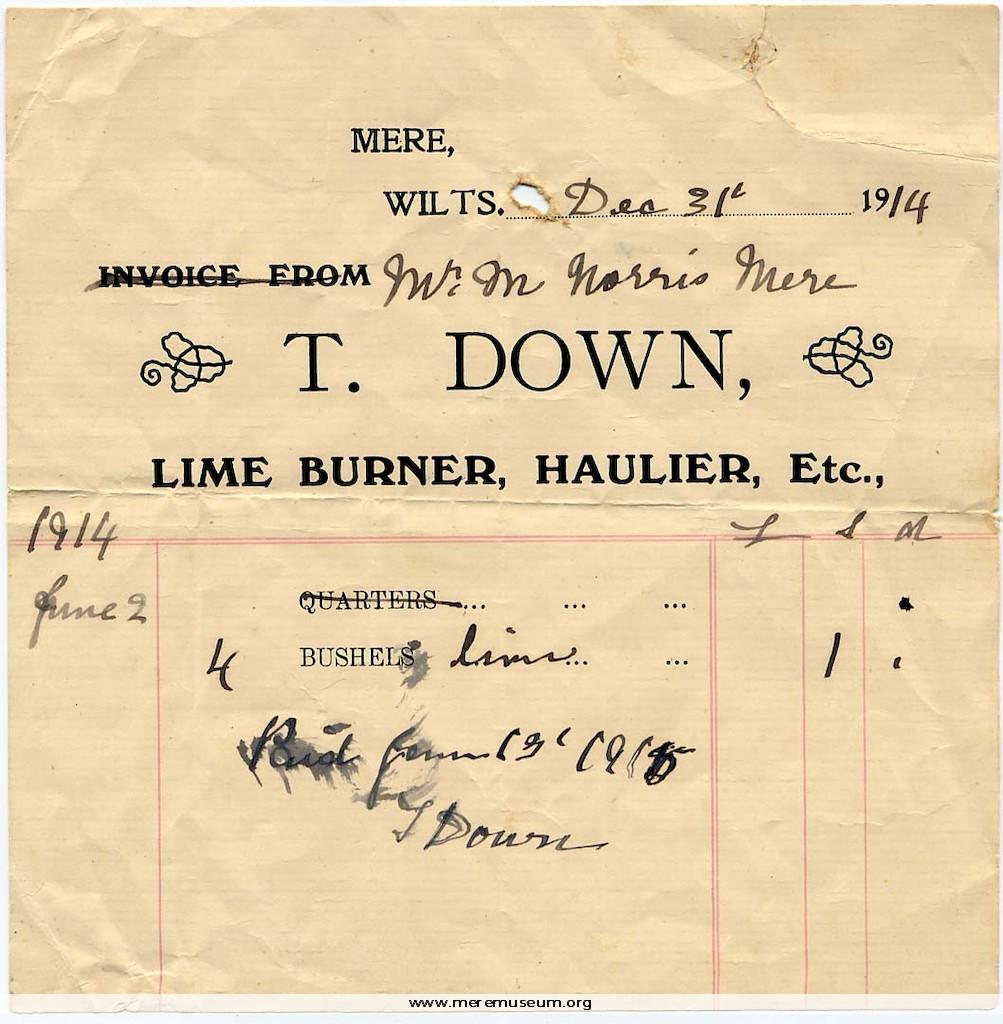 MERE,
WILTS. Dec 31st 1914
INVOICE FROM Mr. M Norris Mere
T. DOWN,
LIME BURNER, HAULIER, Etc.,
1914 £ S d
June 2 QUARTERS ... ... ...
4 BUSHELS lime ... ... 1
Paid 1915
T Down
www.meremuseum.org